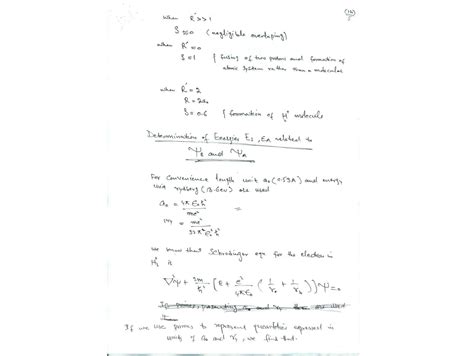 (12)
when R'>>1
S≈0 (negligible overlaping)
when R'≈0
S≈1 { fusing of two protons and formation of
atomic system rather than a molecular
when R'=2
R=2a₀
S=0.6 { formation of H₂⁺ molecule
Determination of Energies E_S, E_A related to
Ψ_S and Ψ_A
For convenience length unit a₀ (0.53A) and energy
unit rydberg (13.6ev) are used
a₀ = 4πε₀ħ² / me² =
me⁴ / 32π²ε₀²ħ²
we know that Schrodinger eqn for the electron in
H₂⁺ is
∇²Ψ + 2m/ħ² [E + e²/4πε₀ (1/r_a + 1/r_b)] Ψ=0
If we use primes to represent quantities expressed in
units of a₀ and , we find that.